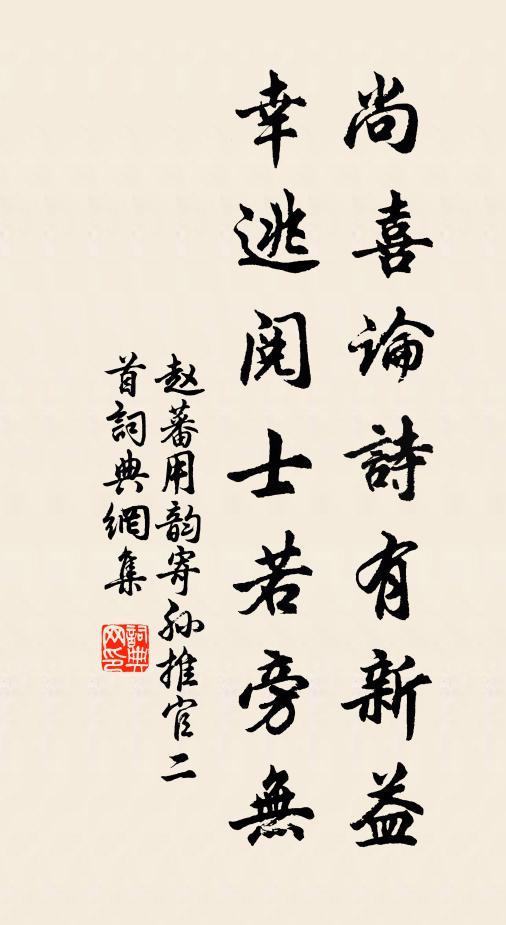 尚喜論詩有新益
幸逃閱士若旁無
赵蕃用韵寄孙推官二
首詞典網集
詞典
网印